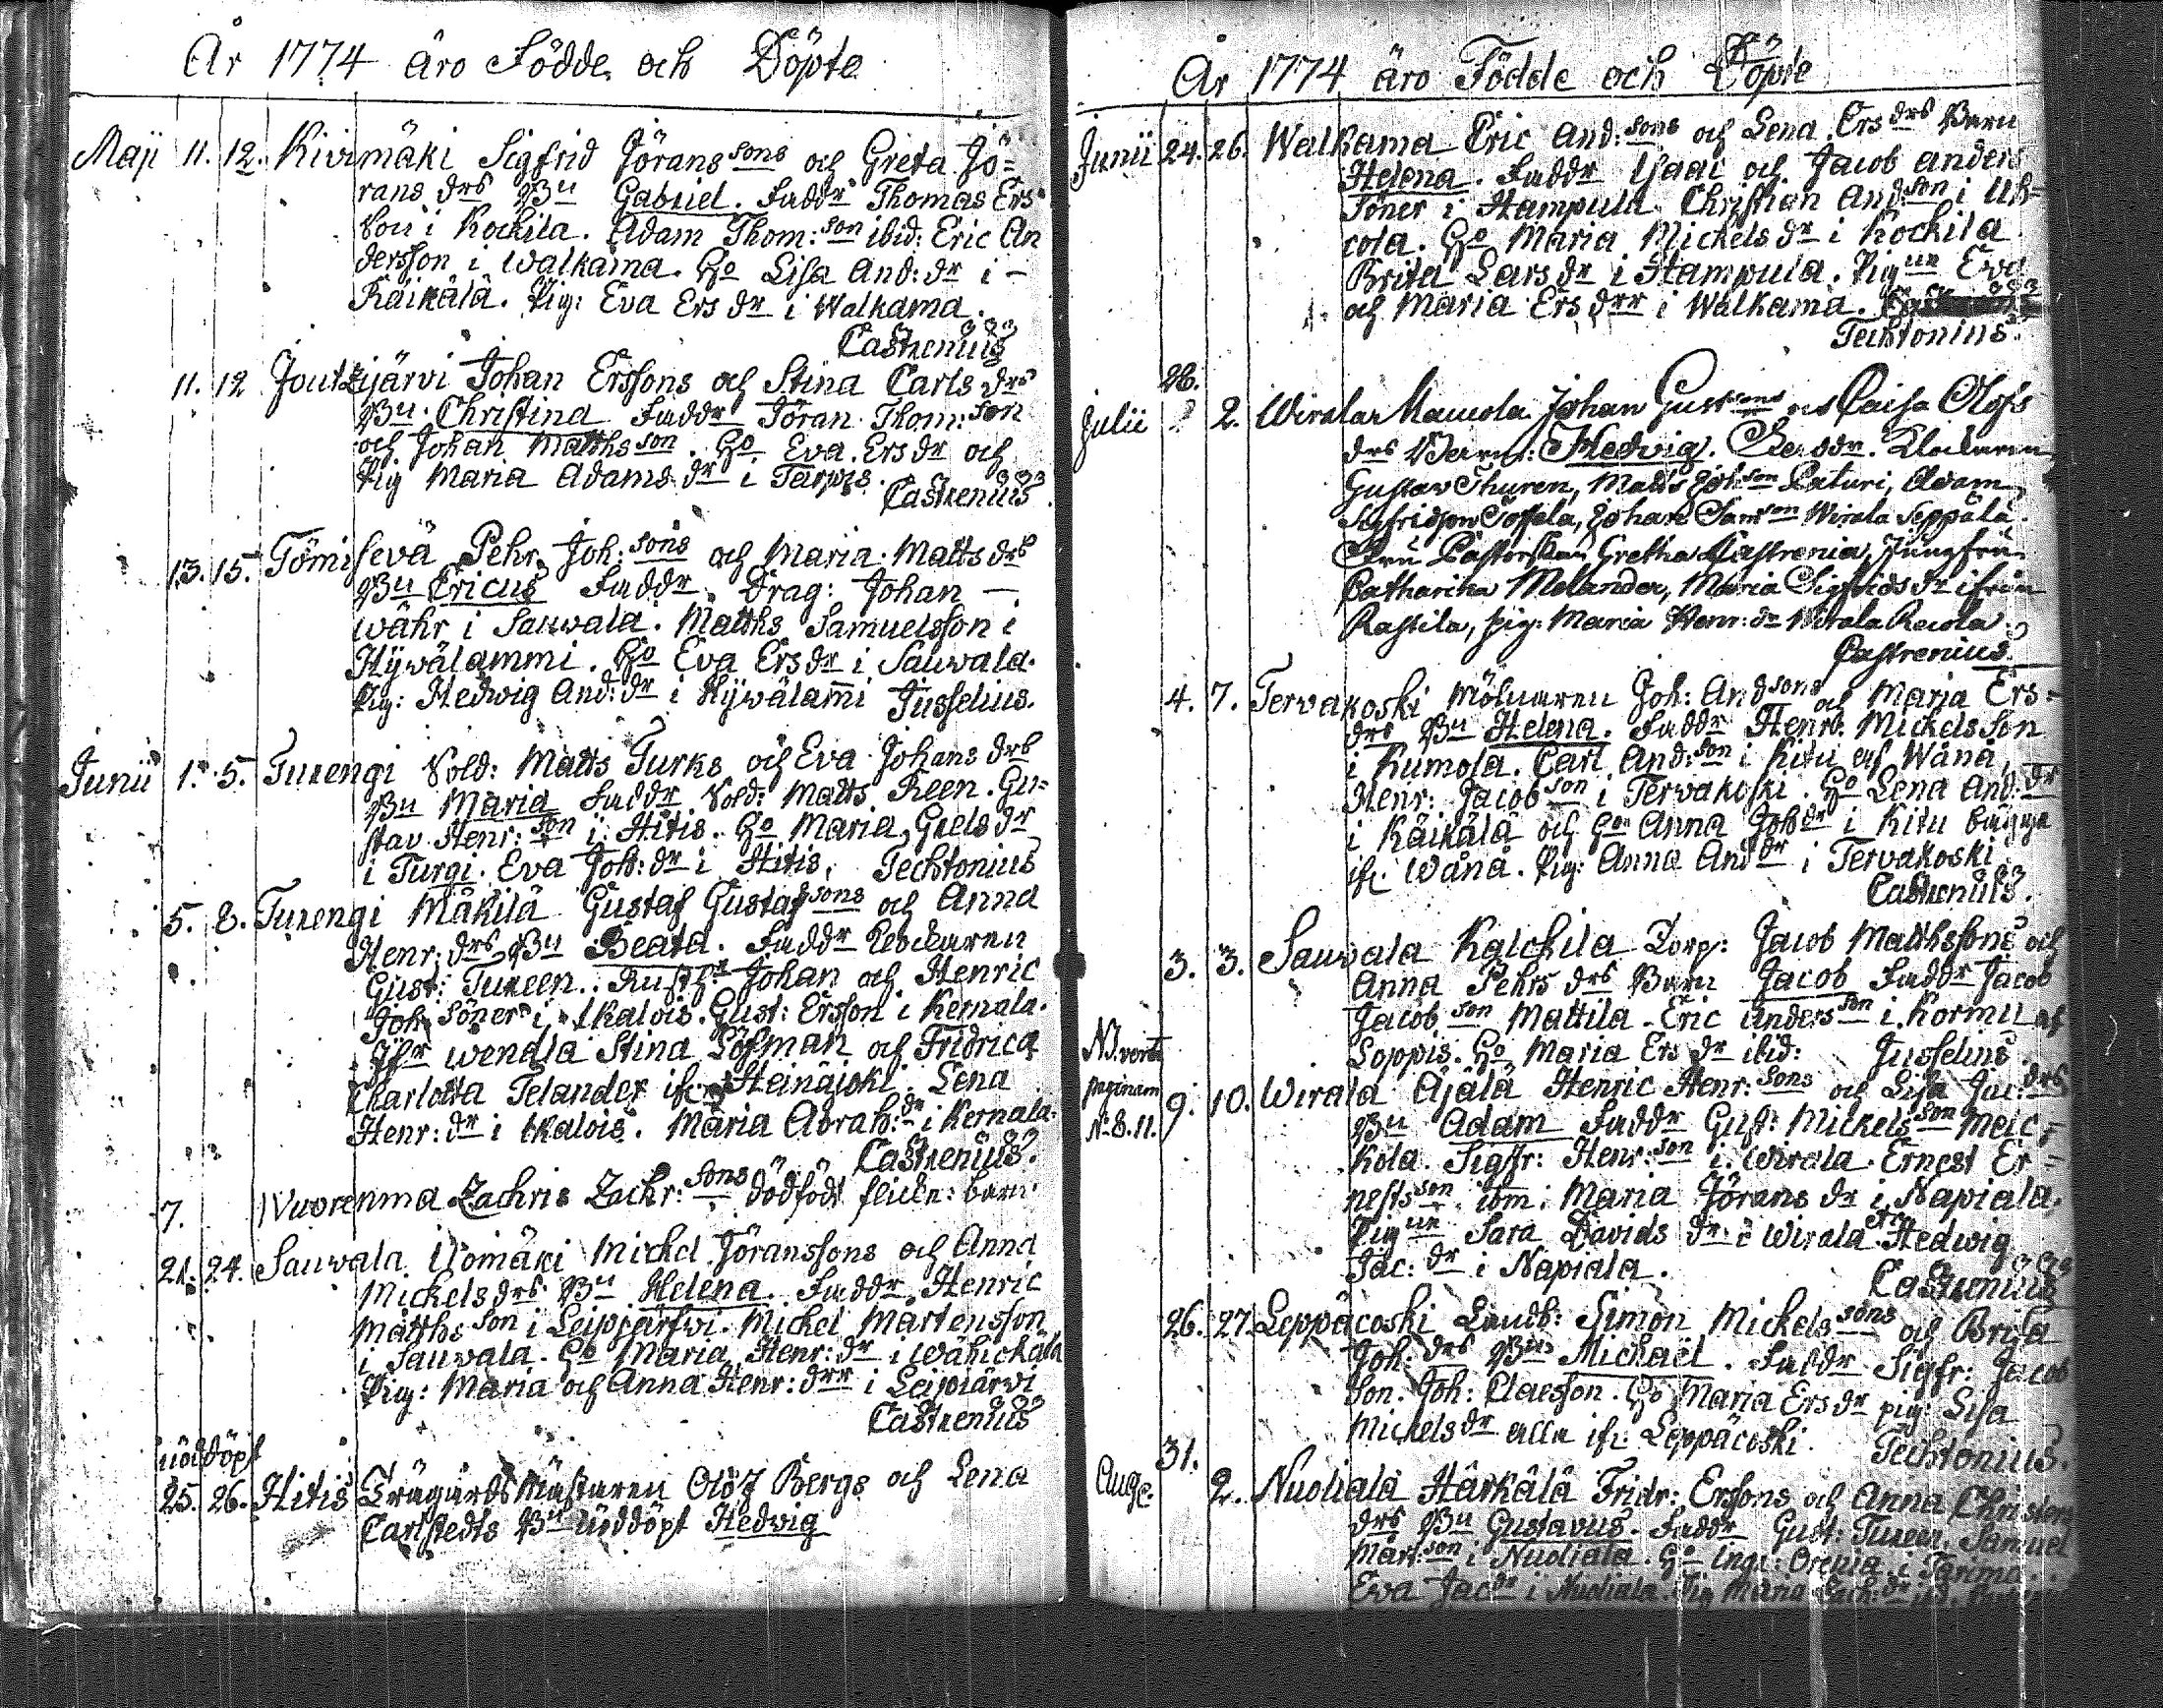 År 1774 äro Födde och Döpte
Maji 11. 12. Kivimäki Sigfrid Jöranssons och Greta Jö=
rans drs Bn Gabriel. Faddr Thomas Ers
son i Kockila. Adam Thom: son ibid: Eric An
dersson i Walkama. Ho Lisa And: dr i -
Räikälä. Pig: Eva Ers dr i Walkama.
Castrenius
11. 12 Joutzjärvi Johan Erssons och Stina Carls drs
Bn. Christina Faddr Jöran Thom: son
och Johan Matths son. Ho Eva Ers dr och
Pig Maria Adams dr i Tarpis.
Castrenius.
13. 15. Tömisevä Pehr Joh: sons och Maria Matts drs
Bn Ericus Faddr. Drag: Johan -
währ i Sauvala. Matths Samuelsson i
Hywälammi. Ho Eva Ers dr i Sauvala.
Pig: Hedwig And: dr i Hywälam̄i Jusselius.
Junii 1. 5. Turengi Sold: Matts Turks och Eva Johans drs
Bn Maria Faddr Sold: Matts Reen. Gu=
stav Henr: son i Hitis. Ho Maria Grels dr
i Turgi. Eva Joh: dr i Hitis. Techtonius
5. 8. Turengi Mäkilä Gustaf Gustafsons och Anna
Henr: drs Bn Beata. Faddr Klockaren
Gust: Tureen. Rusth: Johan och Henric
Joh: Söner i Ikalois. Gust: Ersson i Kernala.
Jfr Wendla Stina Löfman och Fridrica
Karlotta Telander ifr. Heinäjoki. Lena
Henr: dr i Ikalois. Maria Abrah: dr i Kernala.
Castrenius.
7. Wuorenma Zachris Zachr: sons dödfödt flicke: barn.
21. 24. Sauvala Ilomäki Michel Jöranssons och Anna
Mickels drs Bn Helena. Faddr Henric
Matths son i Leipjärfvi. Michel Mårtensson
i Sauvala. Ho Maria Henr: dr i Wähickälä
Pig: Maria och Anna Henr: drr i Leipiärvi
Castrenius
nöddöpt
25. 26. Hitis Trägårds Mästaren Olof Bergs och Lena
Carlstedts Bn nöddöpt Hedvig
År 1774 äro Födde och Döpte
Junii 24. 26. Walkama Eric And: sons och Lena Ers drs Barn
Helena. Faddr Isaac och Jacob anders
söner i Hampula. Christian And: son i Uh=
cola. Ho Maria Mickels dr i Kockila.
Brita Lars dr i Hampula. Pigur Eva
och Maria Ers drr i Walkama.
Techtonius.
26.
Julii 2. Wirala Mauola Johan Gust sons och Caisa Olofs
drs Barn: Hedvig. Faddr. Klockaren
Gustav Thuren, Matts Joh son Paturi, Adam
Sigfridson Toffela, Johan Sam son Wirala Seppälä.
Fru Pastorskan Gretha Castrenia, Jungfru
Catharina Melander, Maria Sigfrids dr ifrån
Rastila, pig: Maria Henr: dr Wirala Reiola.
Castrenius.
4. 7. Tervakoski Mölnaren Joh: And sons och Maria Ers=
drs Bn Helena. Faddr Henr. Mickels son
i Kumola. Carl And: son i Kitu af Wånå,
Henr: Jacob son i Tervakoski. Ho Lena And: dr
i Räikälä och Ho Anna Joh dr i Kitu bägge
ifr. Wånå. Pig: Anna And dr i Tervakoski
Castrenius.
3. 3. Sauvala Kalckila Torp: Jacob Matthssons och
Anna Pehrs drs Barn Jacob Faddr Jacob
Jacob son Mattila. Eric Anders son i Kormu af
Loppis. Ho Maria Ers dr ibid: Jusselius.
NB. verte
paginam
No 8. 11.
9. 10. Wirala Äjälä Henric Henr: sons och Lisa Jac: drs
Bn Adam Faddr Gust: Mickels son Meic=
kola. Sigfr: Henr: son i Wirala. Ernest Er=
nests son ibm. Maria Jörans dr i Napiala.
Pigur Sara Davids dr i Wirala Hedwig
Jac: dr i Napiala.
Castrenius
26. 27. Leppäcoski Landb: Simon Mickels sons och Brita
Joh: drs Bn Michaël. Faddr Sigfr: Jacob
son. Joh: Claesson. Ho Maria Ers dr pig: Lisa
Mickels dr alla ifr. Leppäcoski. Techtonius.
31.
Aug: 2. Nuoliala Härkälä Fridr: Erssons och Anna Christers
drs Bn Gustavus. Faddr Gust: Tureen. Samuel
Mårt: son i Nuoliala. Ho Ing: i Tanima.
Eva Jac dr i Nuoliala. Pig Maria